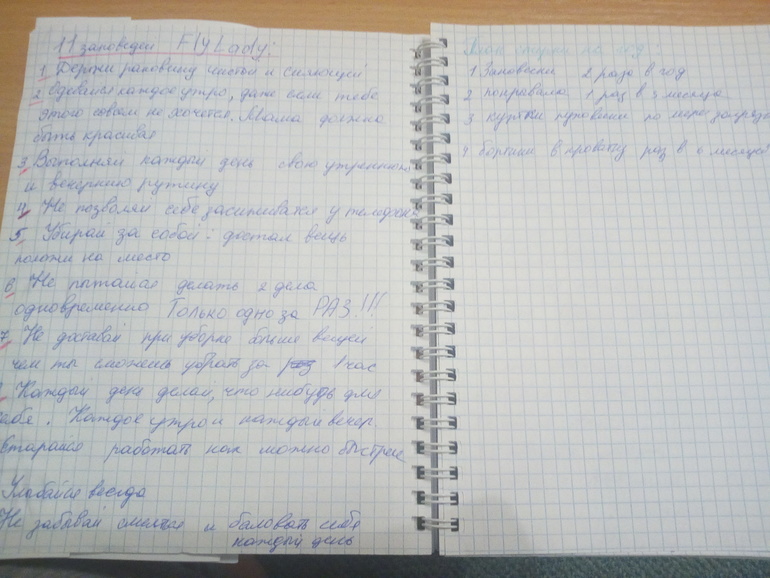 11 заповедей FlyLady:
1 Держи раковину чистой и сияющей
2 Одевайся каждое утро, даже если тебе
этого совсем не хочется. Мама должна
быть красивая
3. Выполняй каждый день свою утреннюю
и вечернюю рутину
4. Не позволяй себе засиживаться у
5. Убирай за собой: достал вещь
положи на место
6 Не пытайся делать 2 дела
одновременно Только одно за РАЗ!!!
7. Не доставай при уборке больше вещей
чем ты сможешь убрать за 1 час
Каждый день делай, что нибудь для
себя. Каждое утро и каждый вечер.
старайся работать как можно быстрее
Улыбайся всегда
Не забывай смеяться и баловать себя
каждый день
План стирки на год:
1 Занавески 2 раза в год
2 покрывала 1 раз в 3 месяца
3 куртки пуховики по мере загрязн
4 бортики в кроватку раз в 6 месяцев